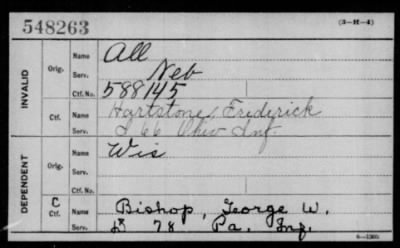 548263
(3-H-4)
INVALID
Orig.
Name All
Serv. Neb
Ctf. No. 588145
Ctf.
Name Hartstone, Frederick
Serv. I 66 Ohio Inf.
DEPENDENT
Orig.
Name Wis
Serv.
Ctf. No.
C
Ctf.
Name Bishop, George W.
Serv. 78 Pa. Inf.